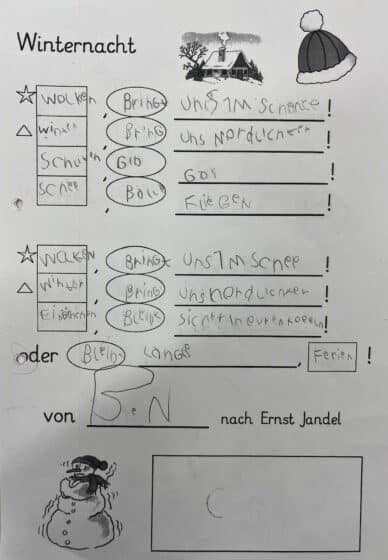 Winternacht
WOLKEN , BRING UNS IM SCHENEE !
WINTER , BRING UNS NORDLICHTER !
GIB !
SCHNEE , BÄLLE FLIEGEN !
WOLKEN , BRING UNS IM SCHNEE !
WINTER , BRING UNS NORDLICHTER !
BLEIBE !
oder BLEIBE LANGE , FERIEN !
von BEN nach Ernst Jandel
C